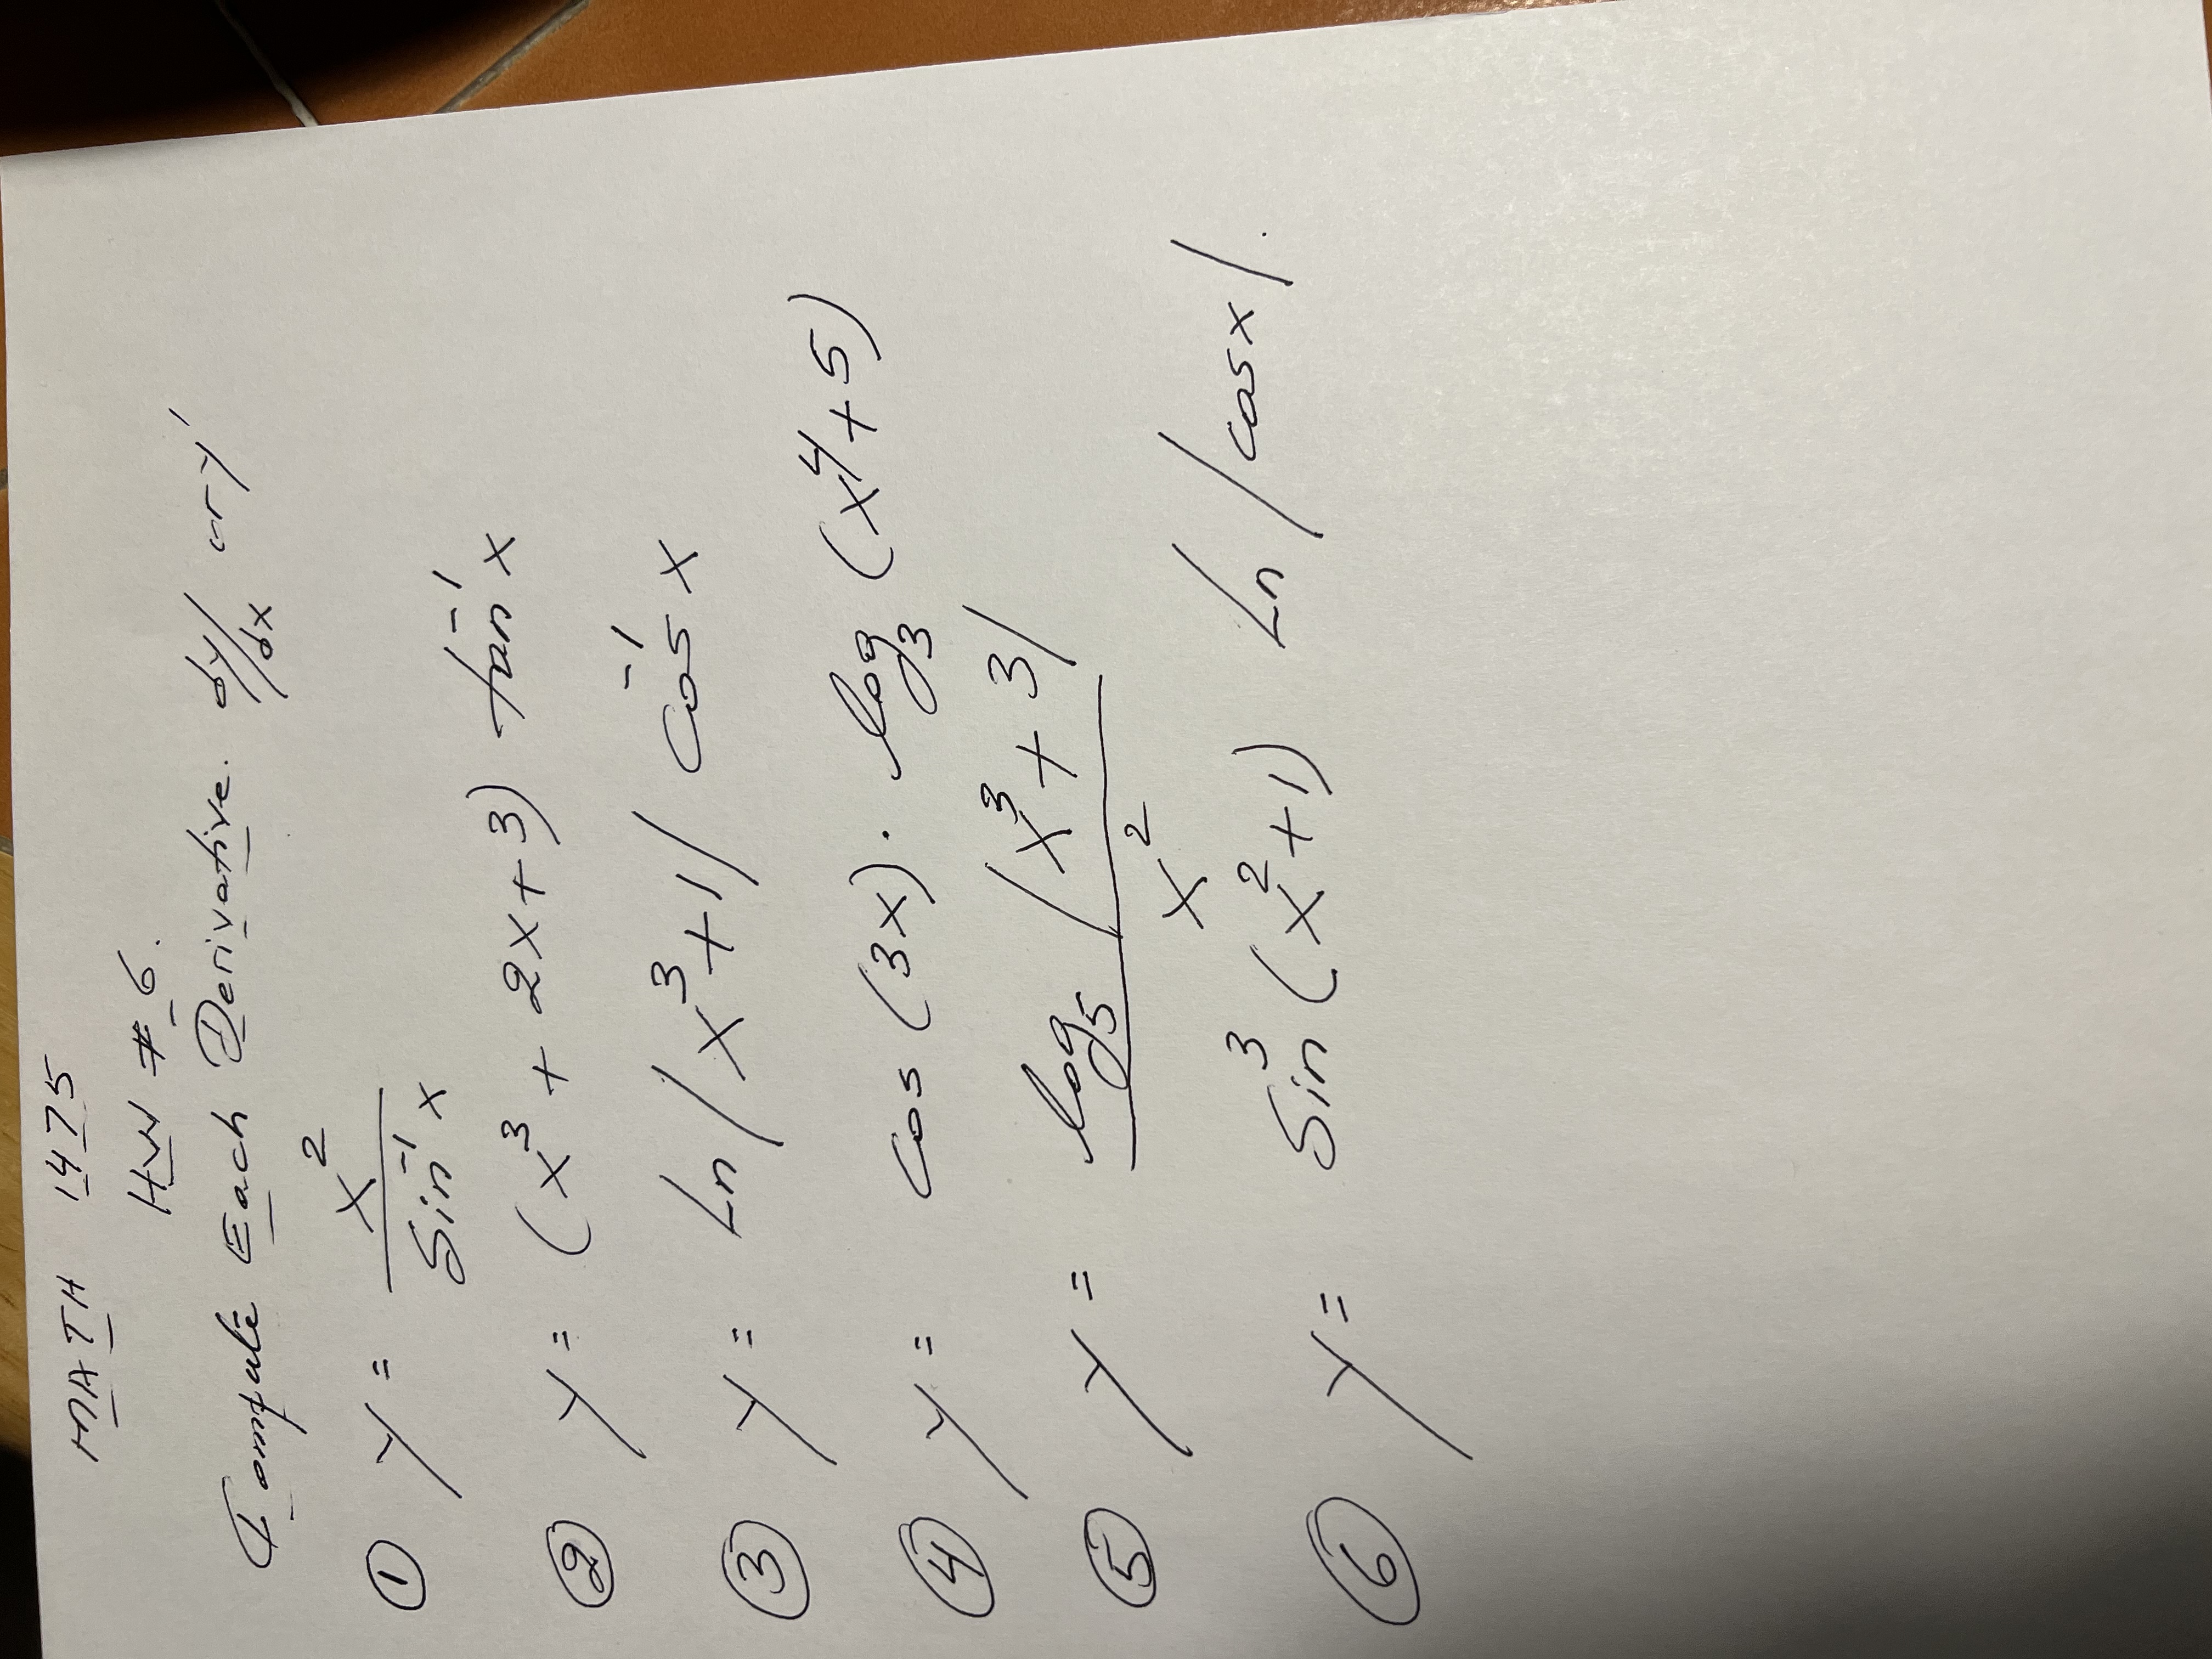 MATH 1475
HW # 6.
Compute Each Derivative. dy/dx or y'
① y = x² / Sin⁻¹ x
② y = (x³ + 2x + 3) tan⁻¹ x
③ y = Ln |x³ + 1| cos⁻¹ x
④ y = cos (3x) . log₃ (x⁴ + 5)
⑤ y = log₅ |x³ + 3| / x²
⑥ y = Sin³ (x² + 1) Ln |cos x|.